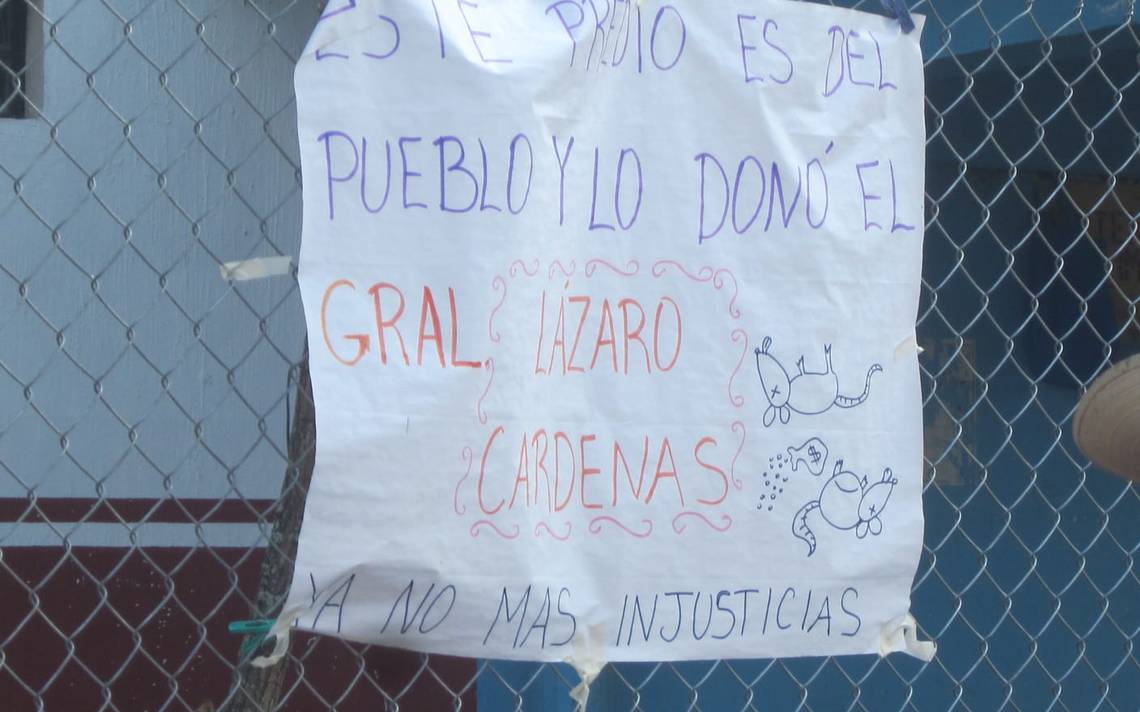 ESTE PREDIO ES DEL
PUEBLO Y LO DONÓ EL
GRAL. LÁZARO
CARDENAS
$
YA NO MAS INJUSTICIAS